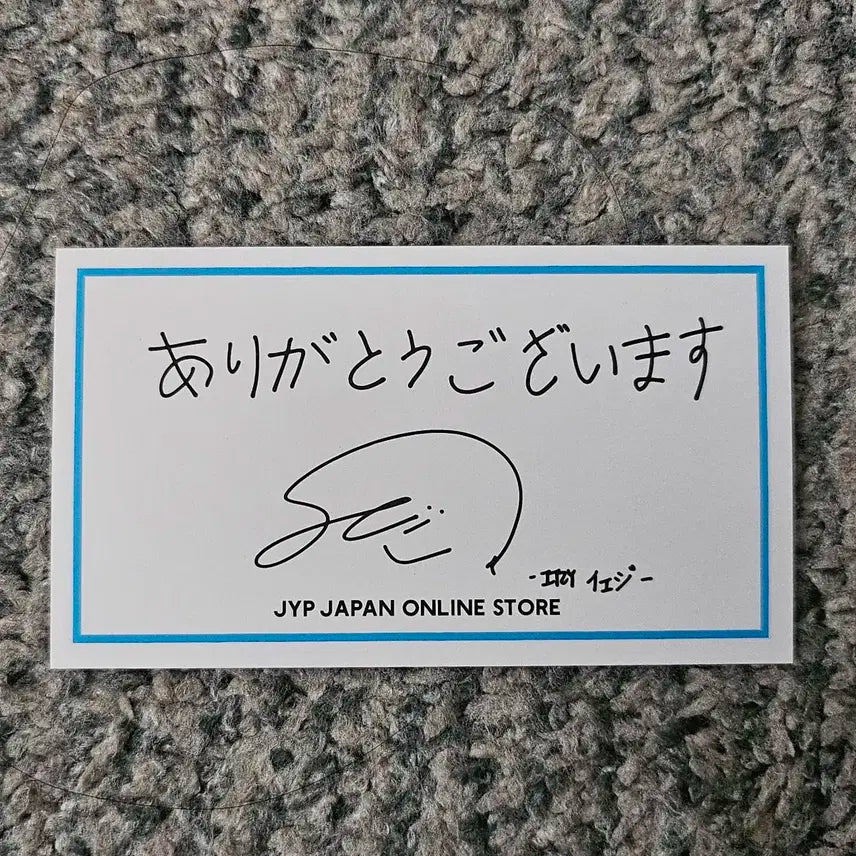 ありがとうございます
-ITZY イェジ-
JYP JAPAN ONLINE STORE